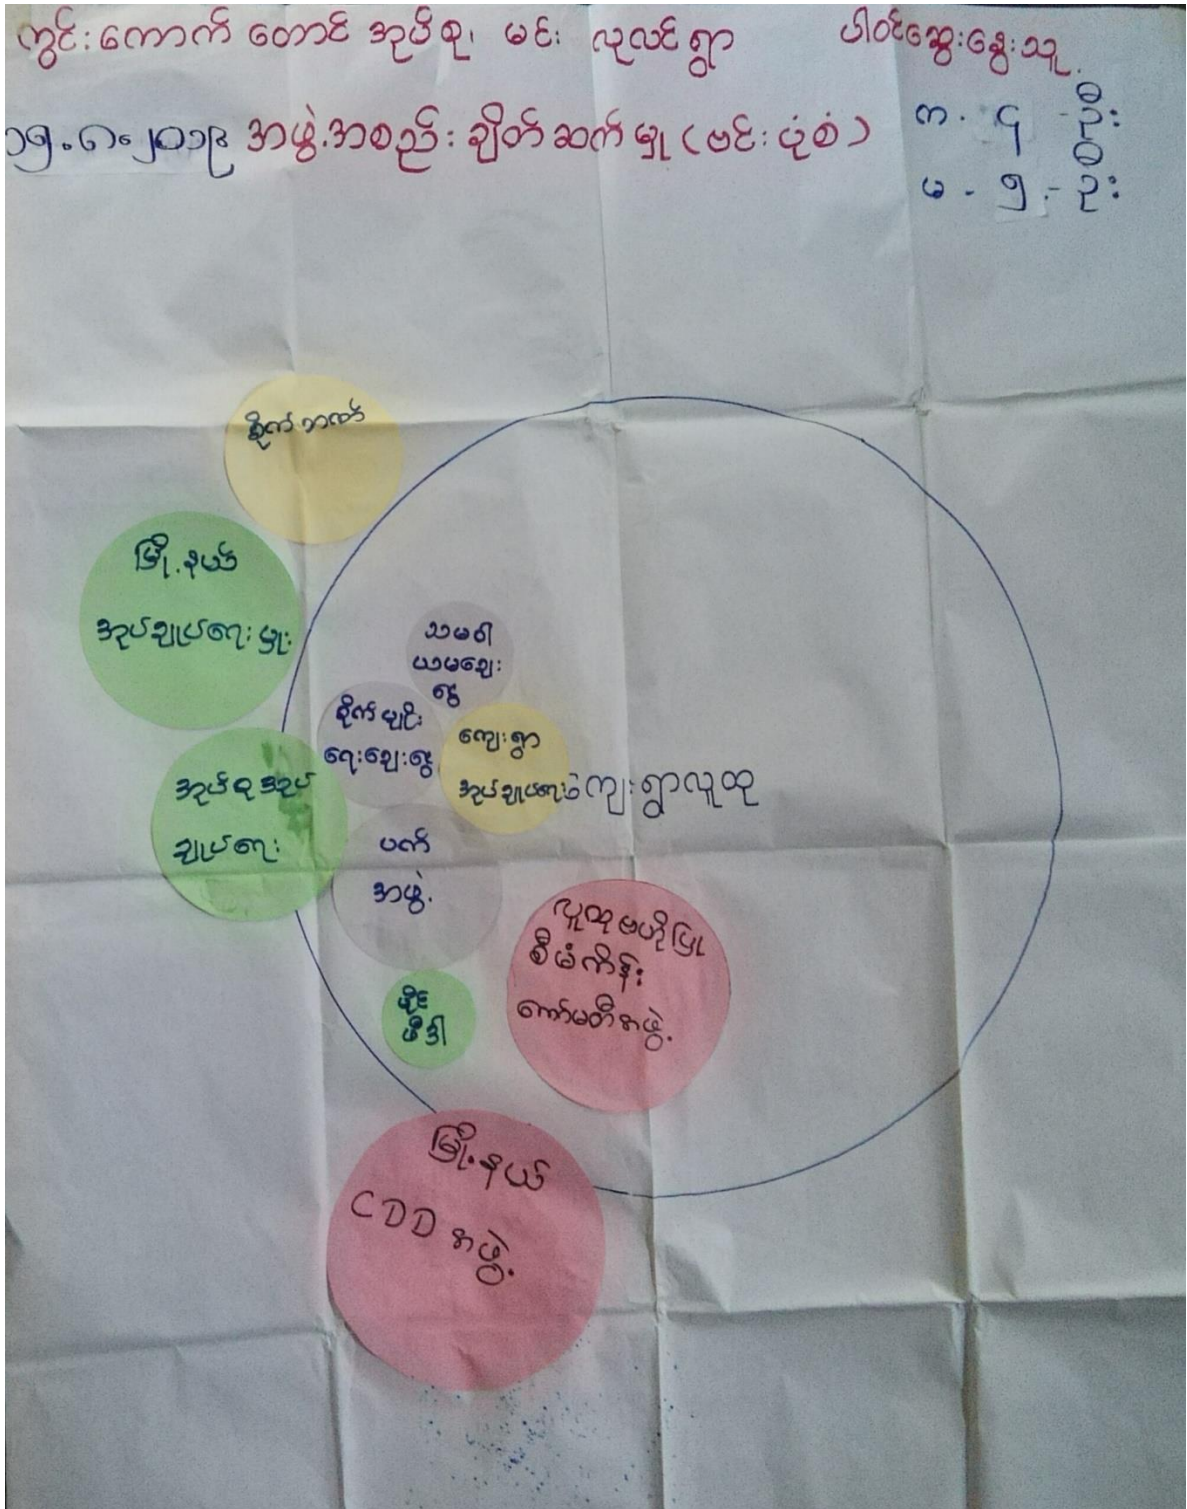 ကွင်းကောက် တောင် အုပ်စု၊ မင်း လုလင် ရွာ
ပါဝင်ဆွေးနွေးသူ
၁၅.၆.၂၀၁၉ အဖွဲ့အစည်း ချိတ်ဆက်မှု (ဗင်းပုံစံ)
က - ၄ - ဦး
မ - ၅ - ဦး
စိုက်ဘဏ်
မြို့နယ်
အုပ်ချုပ်ရေးမှူး
သမဝါ
ယမချေး
ငွေ
စိုက်ပျိုး
ရေးချေးငွေ
ကျေးရွာ
အုပ်ချုပ်ရေး
ကျေးရွာလူထု
အုပ်စုအုပ်
ချုပ်ရေး
ပတ်
အဖွဲ့
လူထုဗဟိုပြု
စီမံကိန်း
ကော်မတီအဖွဲ့
မြို့နယ်
CDD အဖွဲ့